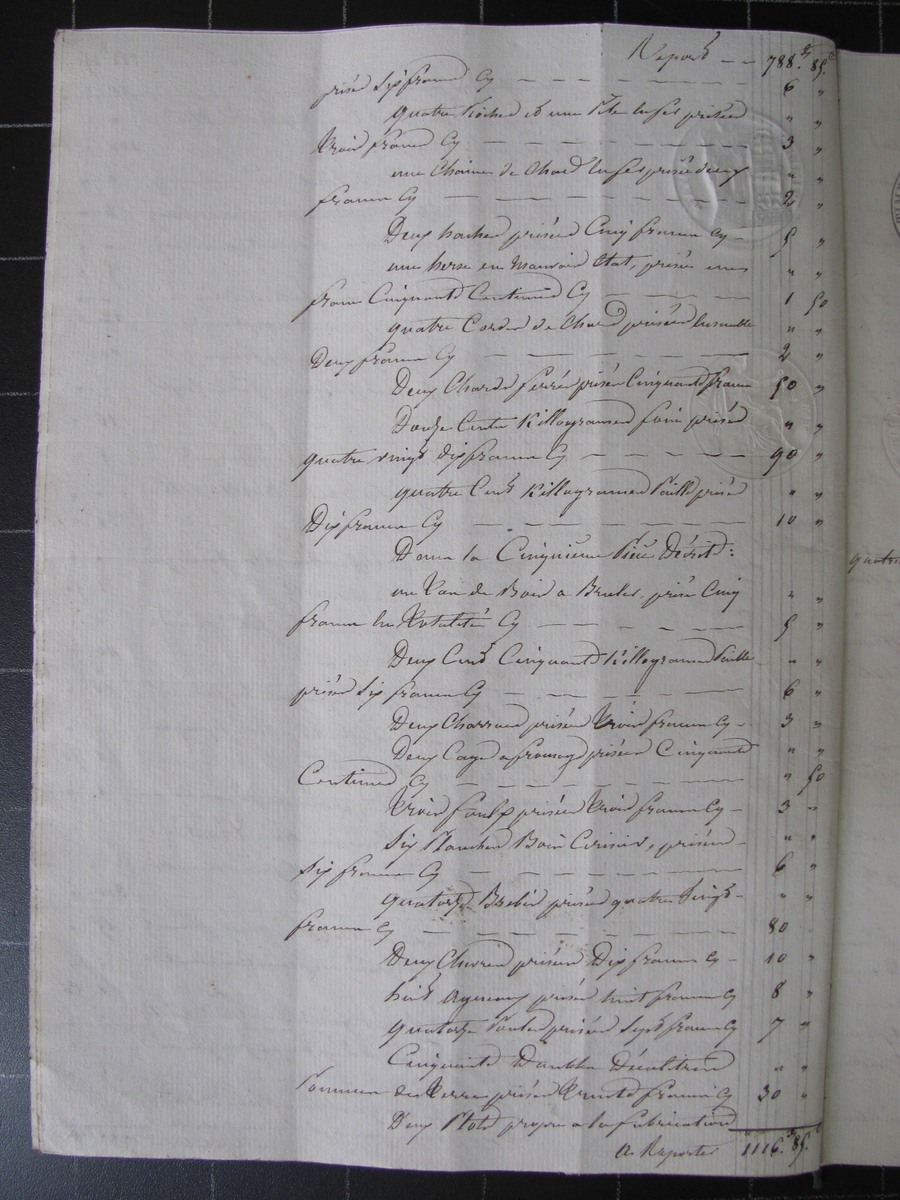 Report — — 788. 85.
prisé Six francs Cy — — — — — 6 "
quatre pioches et une Pele en fer prisées " "
trois francs Cy — — — — — 3 "
une Chaine de Chard en fer prisé deux " "
francs Cy — — — — — 2 "
Deux haches prisées Cinq francs Cy — 5 "
une herse en Mauvais Etat, prisée une " "
franc Cinquante Centimes Cy — — — 1 50
quatre Cordes de Chard prisées Ensemble " "
Deux francs Cy — — — — — 2 "
Deux Chards ferrés prisés Cinquante francs 50 "
Douze Cents Killogrammes foin prisés " "
quatre vingt dix francs Cy — — — 90 "
quatre Cents Killogrammes Paille prisé " "
Dix francs Cy — — — — — 10 "
Dans la Cinquième Pièce Décrite :
un Tas de Bois a Bruler, prisé Cinq " "
francs En totalité Cy — — — — 5 "
Deux Cents Cinquante Killogrammes Paille " "
prisés Six francs Cy — — — — — 6 "
Deux Charrues prisées trois francs Cy — 3 "
Deux Cages a fromage prisées Cinquante " "
Centimes Cy — — — — — " 50
trois faulx prisées trois francs Cy — 3 "
Six Planches Bois Cerisier, prisées — " "
Six francs Cy — — — — — 6 "
quatorze Brebis prisées quatre Vingt — " "
francs Cy — — — — — 80
Deux Chevres prisées Dix francs Cy — 10 "
huit agneaux prisés huit francs Cy 8 "
quatorze Poules prisées Sept francs Cy 7 "
Cinquante Doubles Décalitres " "
Pommes de terre prisées trente francs Cy 30 "
Deux Pots propre a la fabrication
A Reporter 1116. 85.